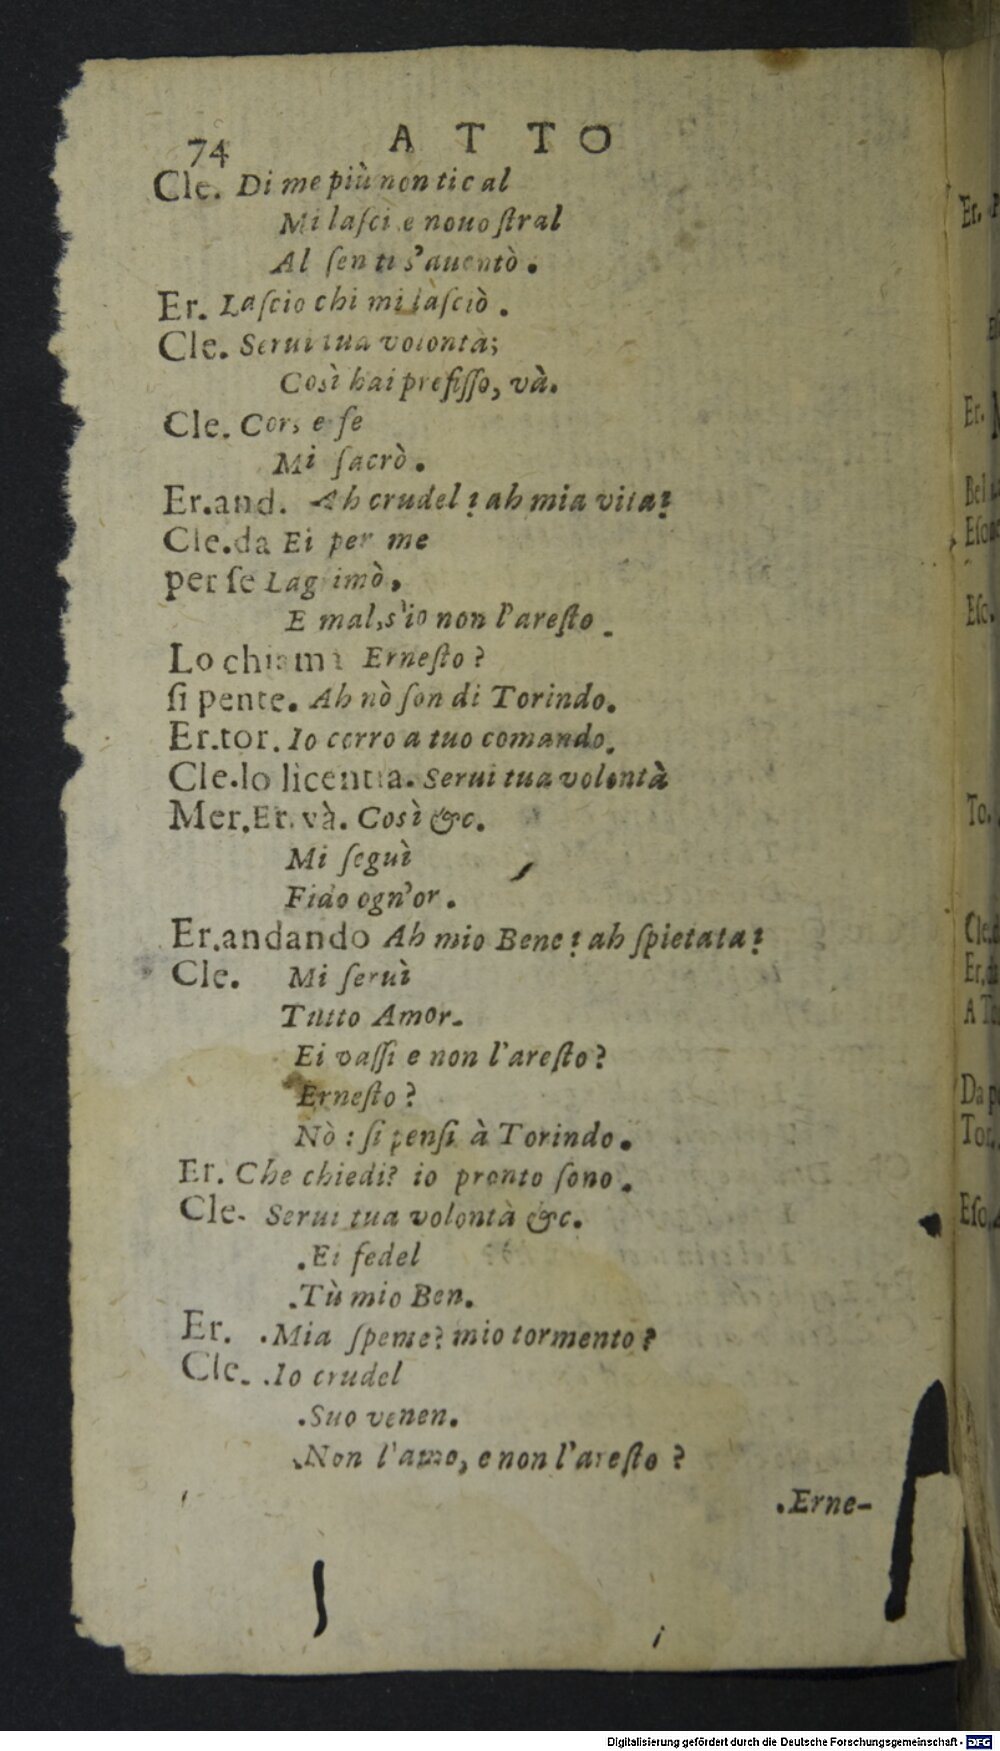 74 ATTO
Cle. Di me più non tic al
Mi laſci e nouo ſtral
Al ſen ti s'auentò.
Er. Laſcio chi mi làſciò.
Cle. Serui tua volontà;
Così hai prefiſſo, và.
Cle. Cor, e ſe
Mi ſacrò.
Er.and. Ah crudel! ah mia vita!
Cle.da Ei per me
per ſe Lagrimò.
E mal,s'io non l'areſto.
Lo chiama Erneſto?
ſi pente. Ah nò ſon di Torindo.
Er.tor. Io corro a tuo comando.
Cle.lo licentia. Serui tua volontà
Mer.Er. và. Così &c.
Mi ſeguì
Fido ogn'or.
Er.andando Ah mio Bene! ah ſpietata!
Cle. Mi ſeruì
Tutto Amor.
Ei vaſſi e non l'areſto?
Erneſto?
Nò: ſi penſi à Torindo.
Er. Che chiedi? io pronto ſono.
Cle. Serui tua volontà &c.
.Ei fedel
.Tù mio Ben.
Er. .Mia ſpeme? mio tormento?
Cle. .Io crudel
.Suo venen.
.Non l'amo, e non l'areſto?
.Erne-
Er.
Er.
Bel
Eſo
Eſc.
To.
Cle.
Er.
A To
Da p
Tor.
Eſo.
Digitalisierung gefördert durch die Deutsche Forschungsgemeinschaft - DFG